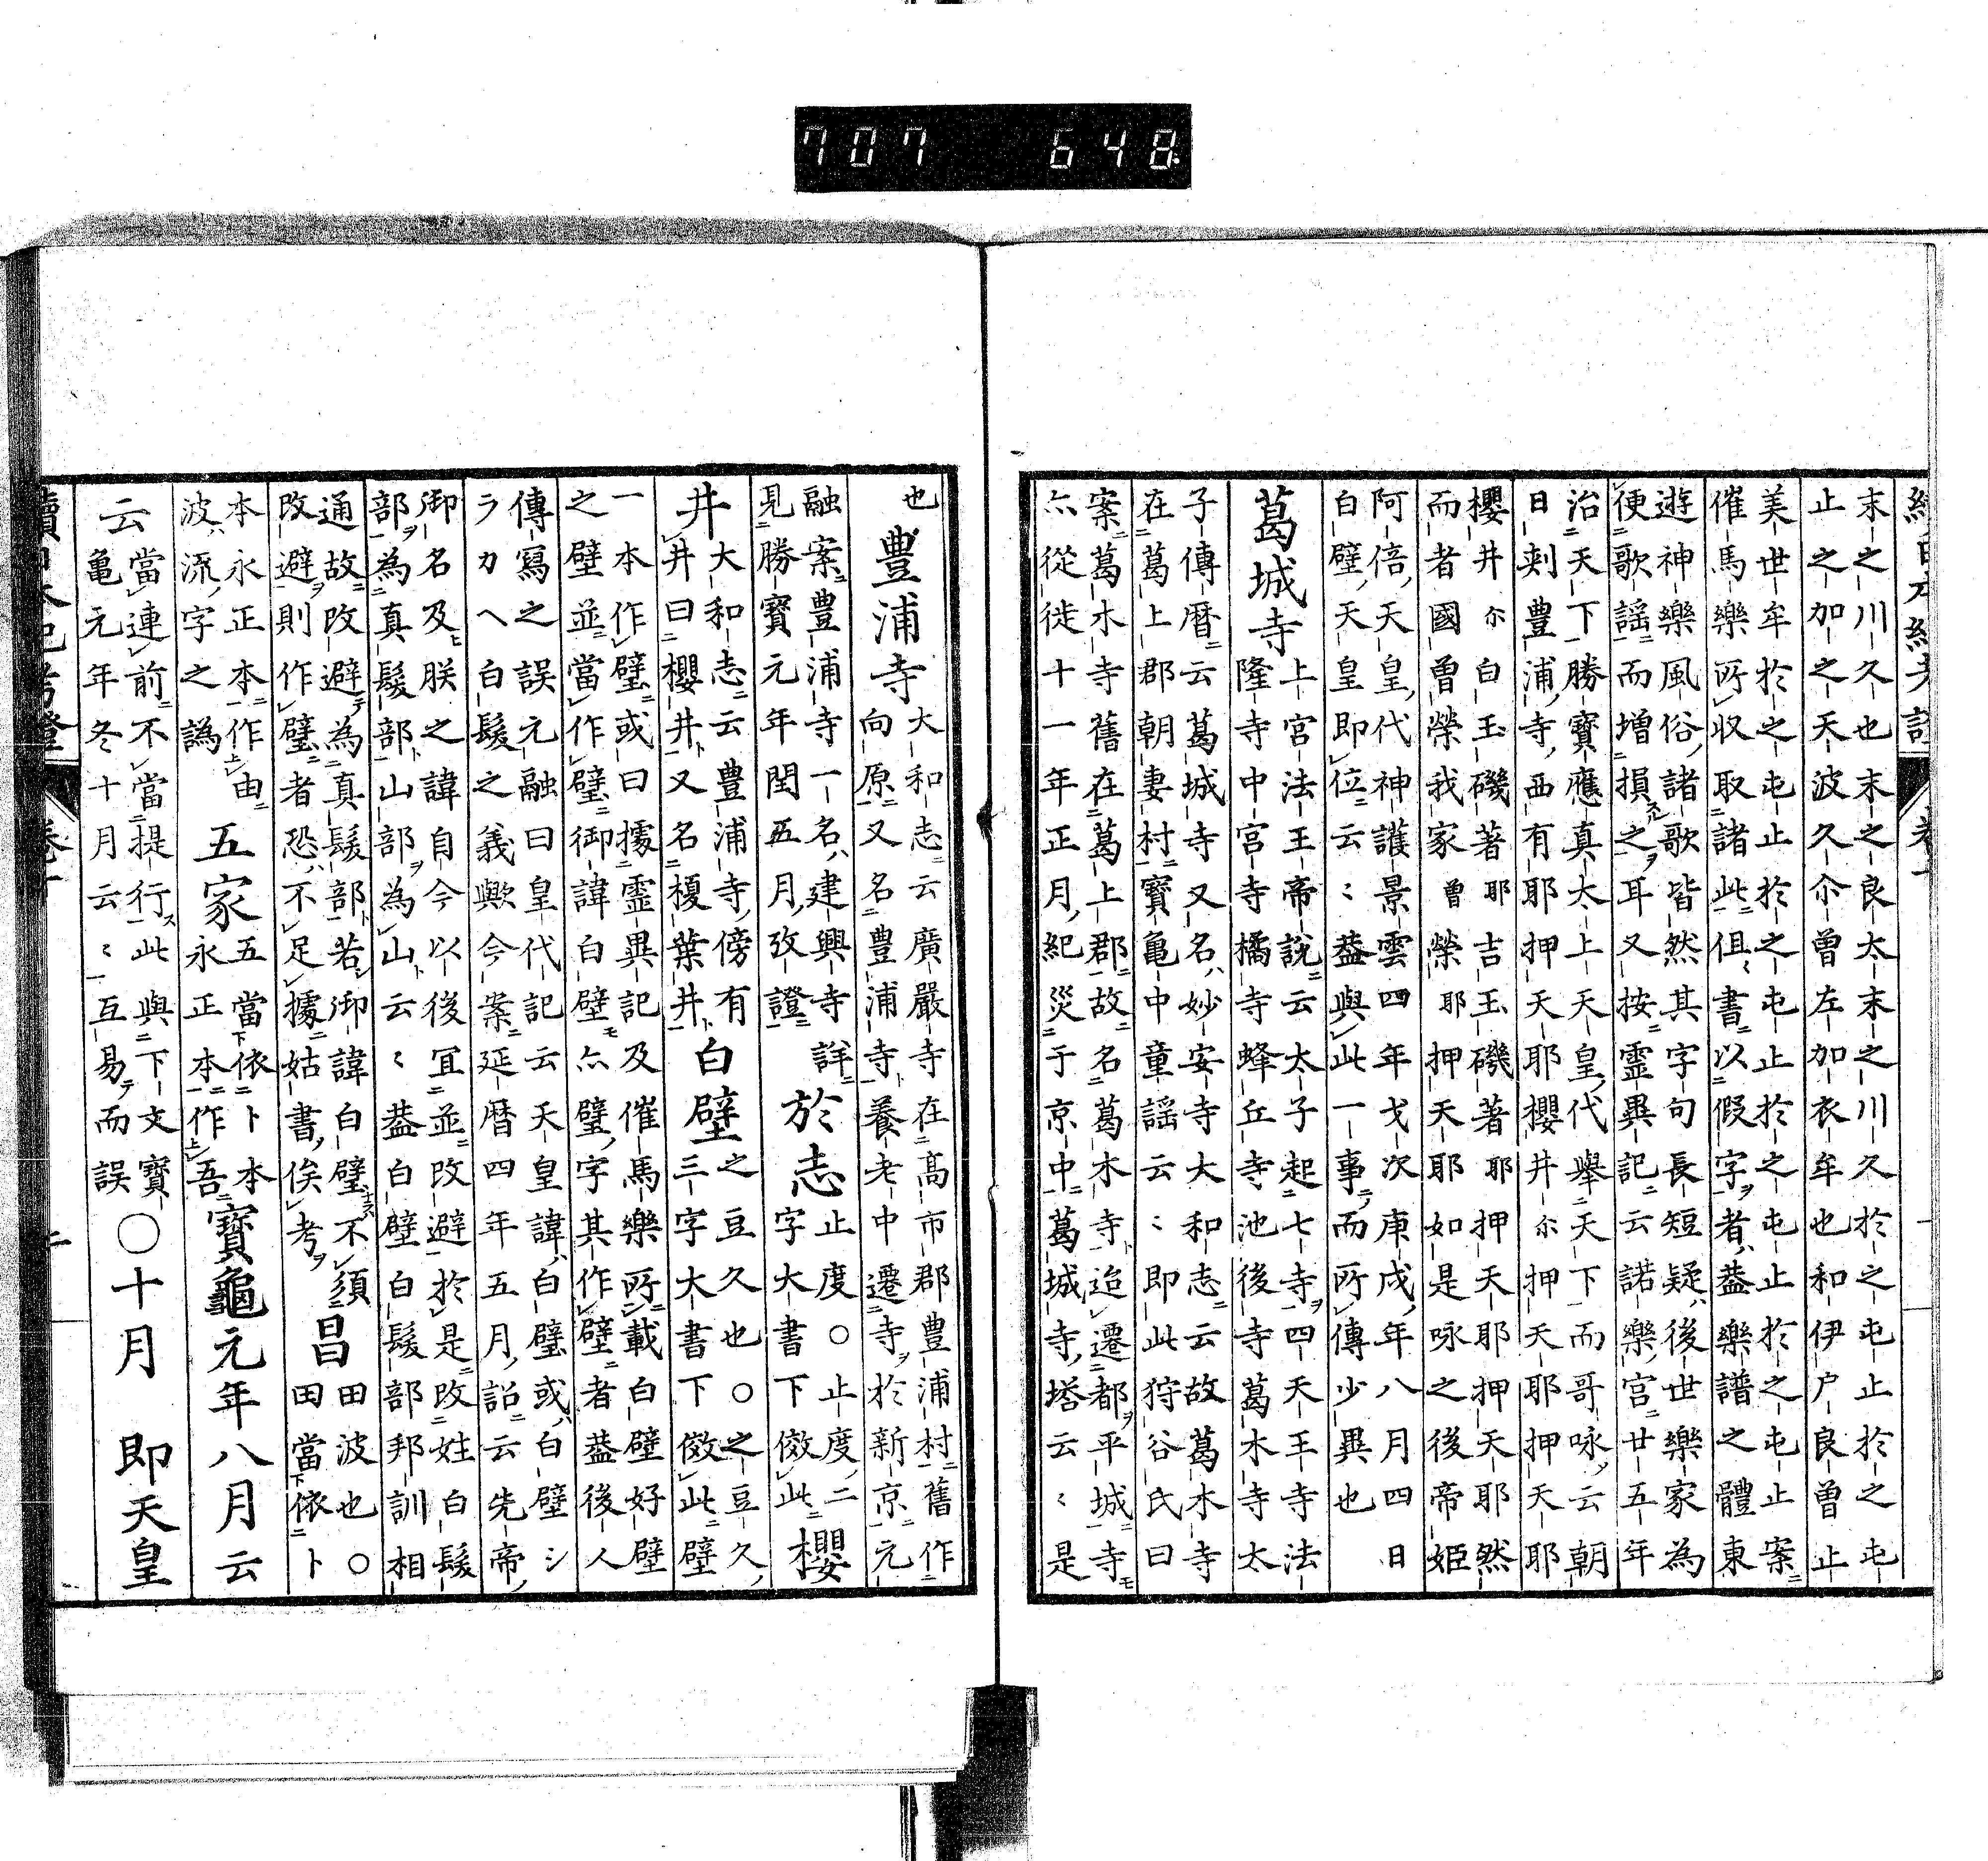 707 648
末之川久也末之良太末之川久於之屯止於之屯
止之加之天波久尒曾左加衣牟也和伊户良曾止
美世牟於之屯止於之屯止於之屯止於之屯止案
催馬樂所収取諸此但書以假字者蓋樂譜之體東
遊神樂風俗諸歌皆然其字句長短疑後世樂家為
便歌謡而増損之耳又按靈異記云諾樂宮廿五年
治天下勝寶應真太上天皇代舉天下而哥咏云朝
日刺豊浦寺西有耶押天耶櫻井尓押天耶押天耶
櫻井尓白玉磯著耶吉玉磯著耶押天耶押天耶然
而者國曾榮我家曾榮耶押天耶如是咏之後帝姬
阿倍天皇代神護景雲四年戈次庚戌年八月四日
白壁天皇即位云〻蓋與此一事而所傳少異也
葛城寺
上宮法王帝說云太子起七寺四天王寺法
隆寺中宮寺橘寺蜂丘寺池後寺葛木寺太
子傳暦云葛城寺又名妙安寺大和志云故葛木寺
在葛上郡朝妻村寶亀中童謡云〻即此狩谷氏曰
案葛木寺舊在葛上郡故名葛木寺迨遷都平城寺
亦從徙十一年正月紀災于京中葛城寺塔云〻是
也
豊浦寺
大和志云廣嚴寺在高市郡豊浦村舊作
向原又名豊浦寺養老中遷寺於新京元
融案豊浦寺一名建興寺詳
見勝寶元年閏五月攷證
於志
止度○止度二
字大書下傚此
櫻
井
大和志云豊浦寺傍有
井曰櫻井又名榎葉井
白壁
之豆久也○之豆久
三字大書下傚此壁
一本作璧或曰據靈異記及催馬樂所載白壁好壁
之壁並當作璧御諱白壁亦璧字其作壁者蓋後人
傳寫之誤元融曰皇代記云天皇諱白璧或白壁シ
ラカヘ白髮之義歟今案延暦四年五月詔云先帝
御名及朕之諱自今以後宜並改避於是改姓白髮
部為真髮部山部為山云〻蓋白壁白髮部邦訓相
通故改避為真髮部若御諱白璧不須
改避則作璧者恐不足據姑書俟考
昌
田波也○
田當依卜
本永正本作由
波流字之譌
五家
五當依卜本
永正本作吾
寶龜元年八月云
云
當連前不當提行此與下文寶
亀元年冬十月云〻互易而誤
○十月 即天皇